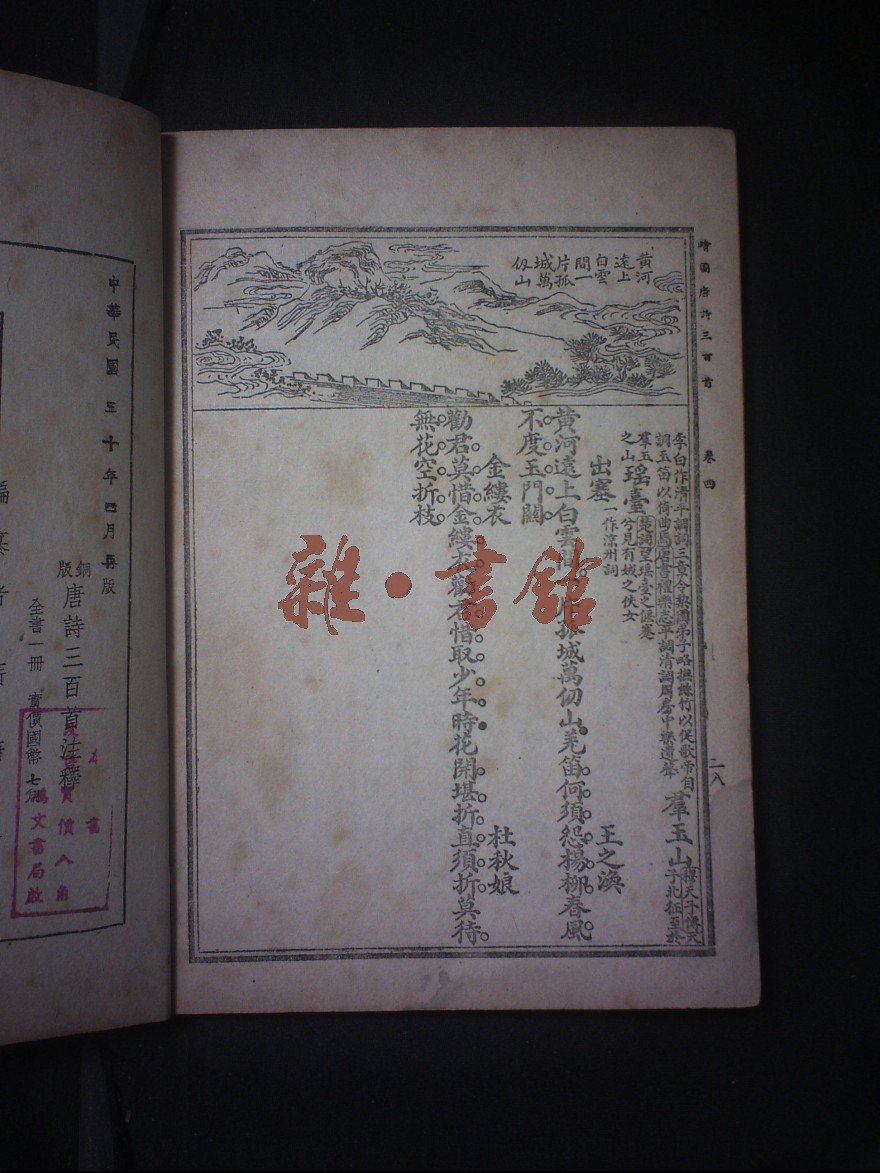 繪圖唐詩三百首 卷四 二八
黃河
遠上
白雲
間一
片孤
城萬
仞山
李白作清平調詞三章令梨園弟子略撫絲竹以促歌帝自
調玉笛以倚曲馬唐書禮樂志平調清調周房中樂遺聲
羣玉山穆天子傳天
子北征至於
羣玉
之山
瑤臺楚詞望瑤臺之偃蹇
兮見有娀之佚女
出塞一作涼州詞 王之渙
黃河遠上白雲間片孤城萬仞山羌笛何須怨楊柳春風
不度玉門關
金縷衣 杜秋娘
勸君莫惜金縷衣勸君惜取少年時花開堪折直須折莫待
無花空折枝
雜·書館
中華民國三十年四月再版
銅版唐詩三百首注釋
全書一冊 實價國幣七角
實價八角
文書局啟